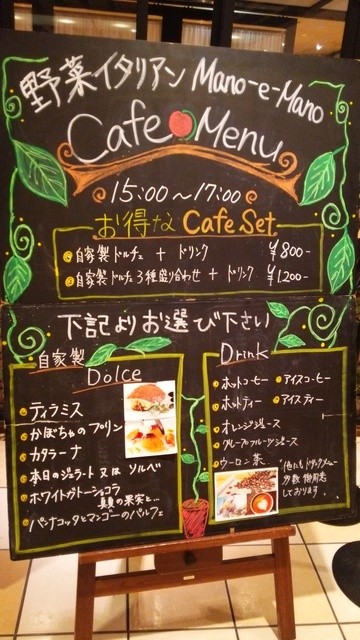 野菜イタリアン Mano-e-Mano
Cafe Menu
15:00～17:00
お得な Cafe Set
自家製ドルチェ + ドリンク ¥800-
自家製ドルチェ3種盛り合わせ + ドリンク ¥1200-
下記よりお選び下さい
自家製
Dolce
ティラミス
かぼちゃのプリン
カタラーナ
本日のジェラート又はソルベ
ホワイトガトーショコラ
真夏の果実と…
パンナコッタとマンゴーのパルフェ
Drink
ホットコーヒー アイスコーヒー
ホットティー アイスティー
オレンジジュース
グレープフルーツジュース
ウーロン茶
他にもドリンクメニュー
多数御用意
しております